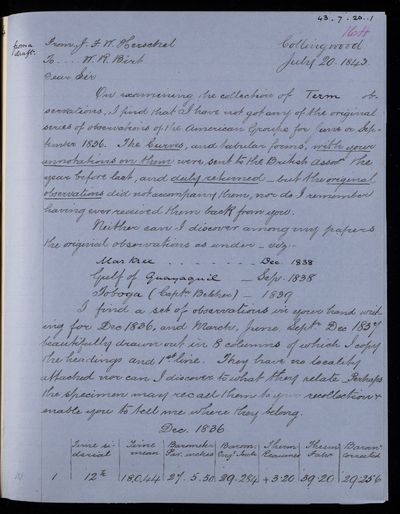 43.7.20.1
16 H
from a draft.
From J. F. W. Herschel
Collingwood
To .... W. R. Birt
July 20. 1843.
Dear Sir
On examining the collection of Term ob-
servations, I find that I have not got any of the original
series of observations of the American Groupe for June or Sep-
tember 1836. The Curves, and tabular forms, with your
annotations on them were sent to the British Assocn the
year before last, and duly returned – but the original
observations did not accompany them, nor do I remember
having ever received them back from you.
Neither can I discover among my papers
the original observations as under – viz.
Markree . . . . . . . Dec. 1838
Gulf of Guayaquil – Sep. 1838
Toboga (Captn Belcher) – 1839
I find a set of observations in your hand writ-
ing for Dec 1836, and March, June, Septr Dec 1837
beautifully drawn out in 8 columns of which I copy
the headings and 1st line. They have no locality
attached nor can I discover to what they relate. Perhaps
the specimen may recall them to your recollection &
enable you to tell me where they belong.
Dec. 1836
Time si- Time Barometer Barom. Therm Therm Barom.
dereal mean Par. inches Engl Inch Reaumur Fahr. corrected
1 12h 18,0,44 27. 5.50 29.284 +3.20 39.20 29.256